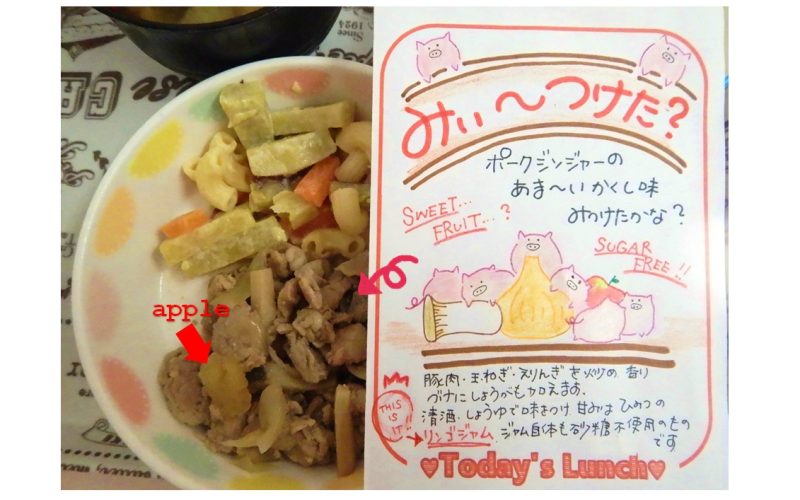 Since
1924
みぃ〜つけた?
ポークジンジャーの
あま〜いかくし味
みつけたかな?
SWEET...
FRUIT...?
SUGAR
FREE!!
apple
豚肉・玉ねぎ・えりんぎを炒め 香り
づけにしょうがも加えます.
清酒・しょうゆで味をつけ 甘みは ひみつの
THIS
IS
IT!!
リンゴジャム. ジャム自体も砂糖不使用のもの
です
♥Today's Lunch♥